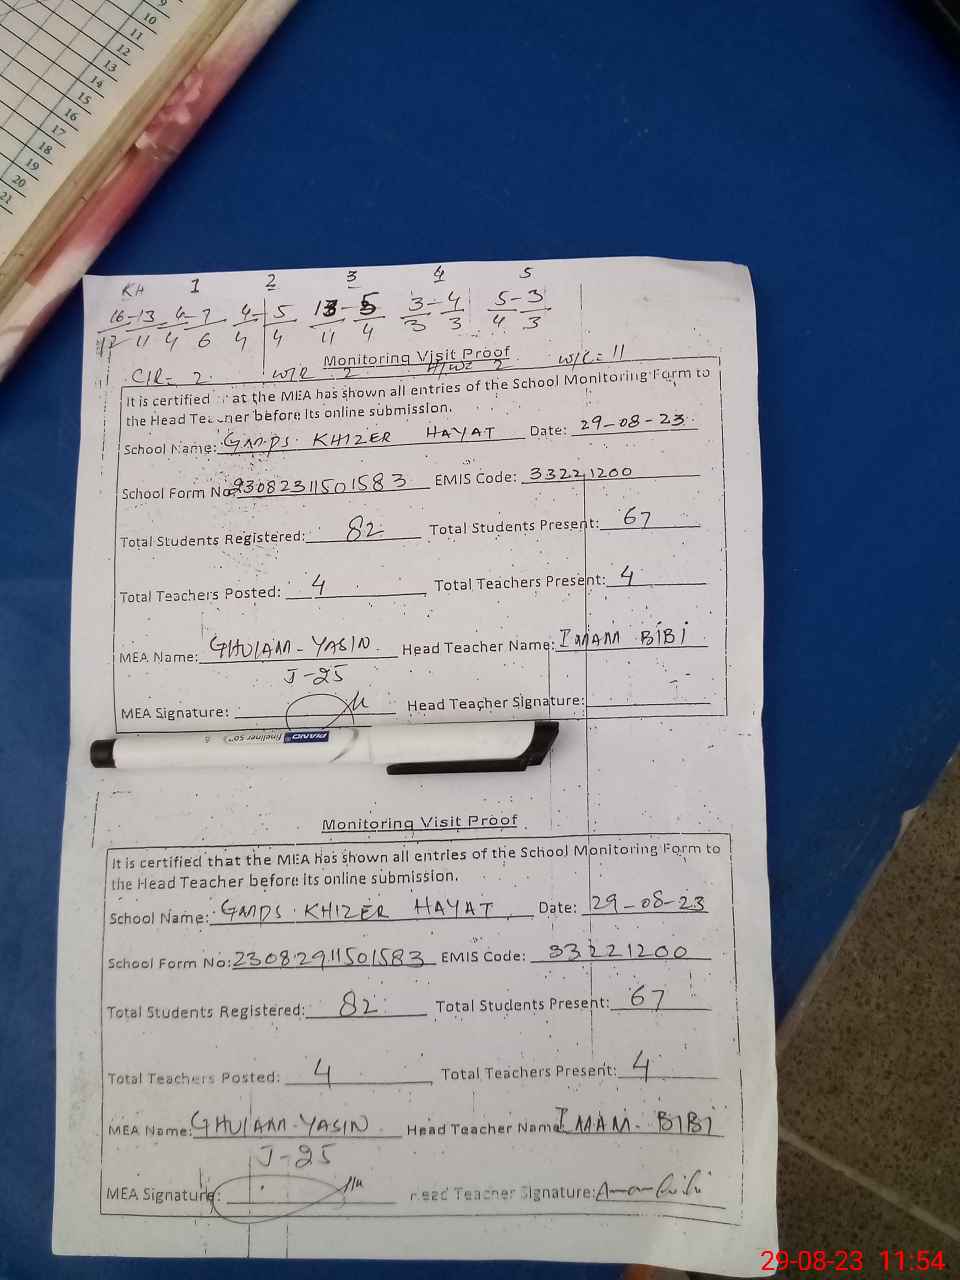 9
10
11
12
13
14
15
16
17
18
19
20
21
KH 1 2 3 4 5
16-13 4-7 4- 5 13-5 3-4 5-3
12 11 4 6 4 4 11 4 3 3 4 3
Monitoring Visit Proof
C/R= 2 W/R 2 H/WZ 2 W/C= 11
It is certified at the MEA has shown all entries of the School Monitoring Form to
the Head Teacher before its online submission.
School Name: GMPS. KHIZER HAYAT Date: 29-08-23
School Form No: 93082311501583 EMIS Code: 33221200
Total Students Registered: 82 Total Students Present: 67
Total Teachers Posted: 4 Total Teachers Present: 4
MEA Name: GHULAM-YASIN Head Teacher Name: IMAM BIBI
J-25
MEA Signature: Head Teacher Signature:
PIANO fineliner
Monitoring Visit Proof
It is certified that the MEA has shown all entries of the School Monitoring Form to
the Head Teacher before its online submission.
School Name: GMPS. KHIZER HAYAT Date: 29-08-23
School Form No: 23082911501583 EMIS Code: 33221200
Total Students Registered: 82 Total Students Present: 67
Total Teachers Posted: 4 Total Teachers Present: 4
MEA Name: GHULAM-YASIN Head Teacher Name IMAM. BIBI
J-25
MEA Signature: Head Teacher Signature:
29-08-23 11:54